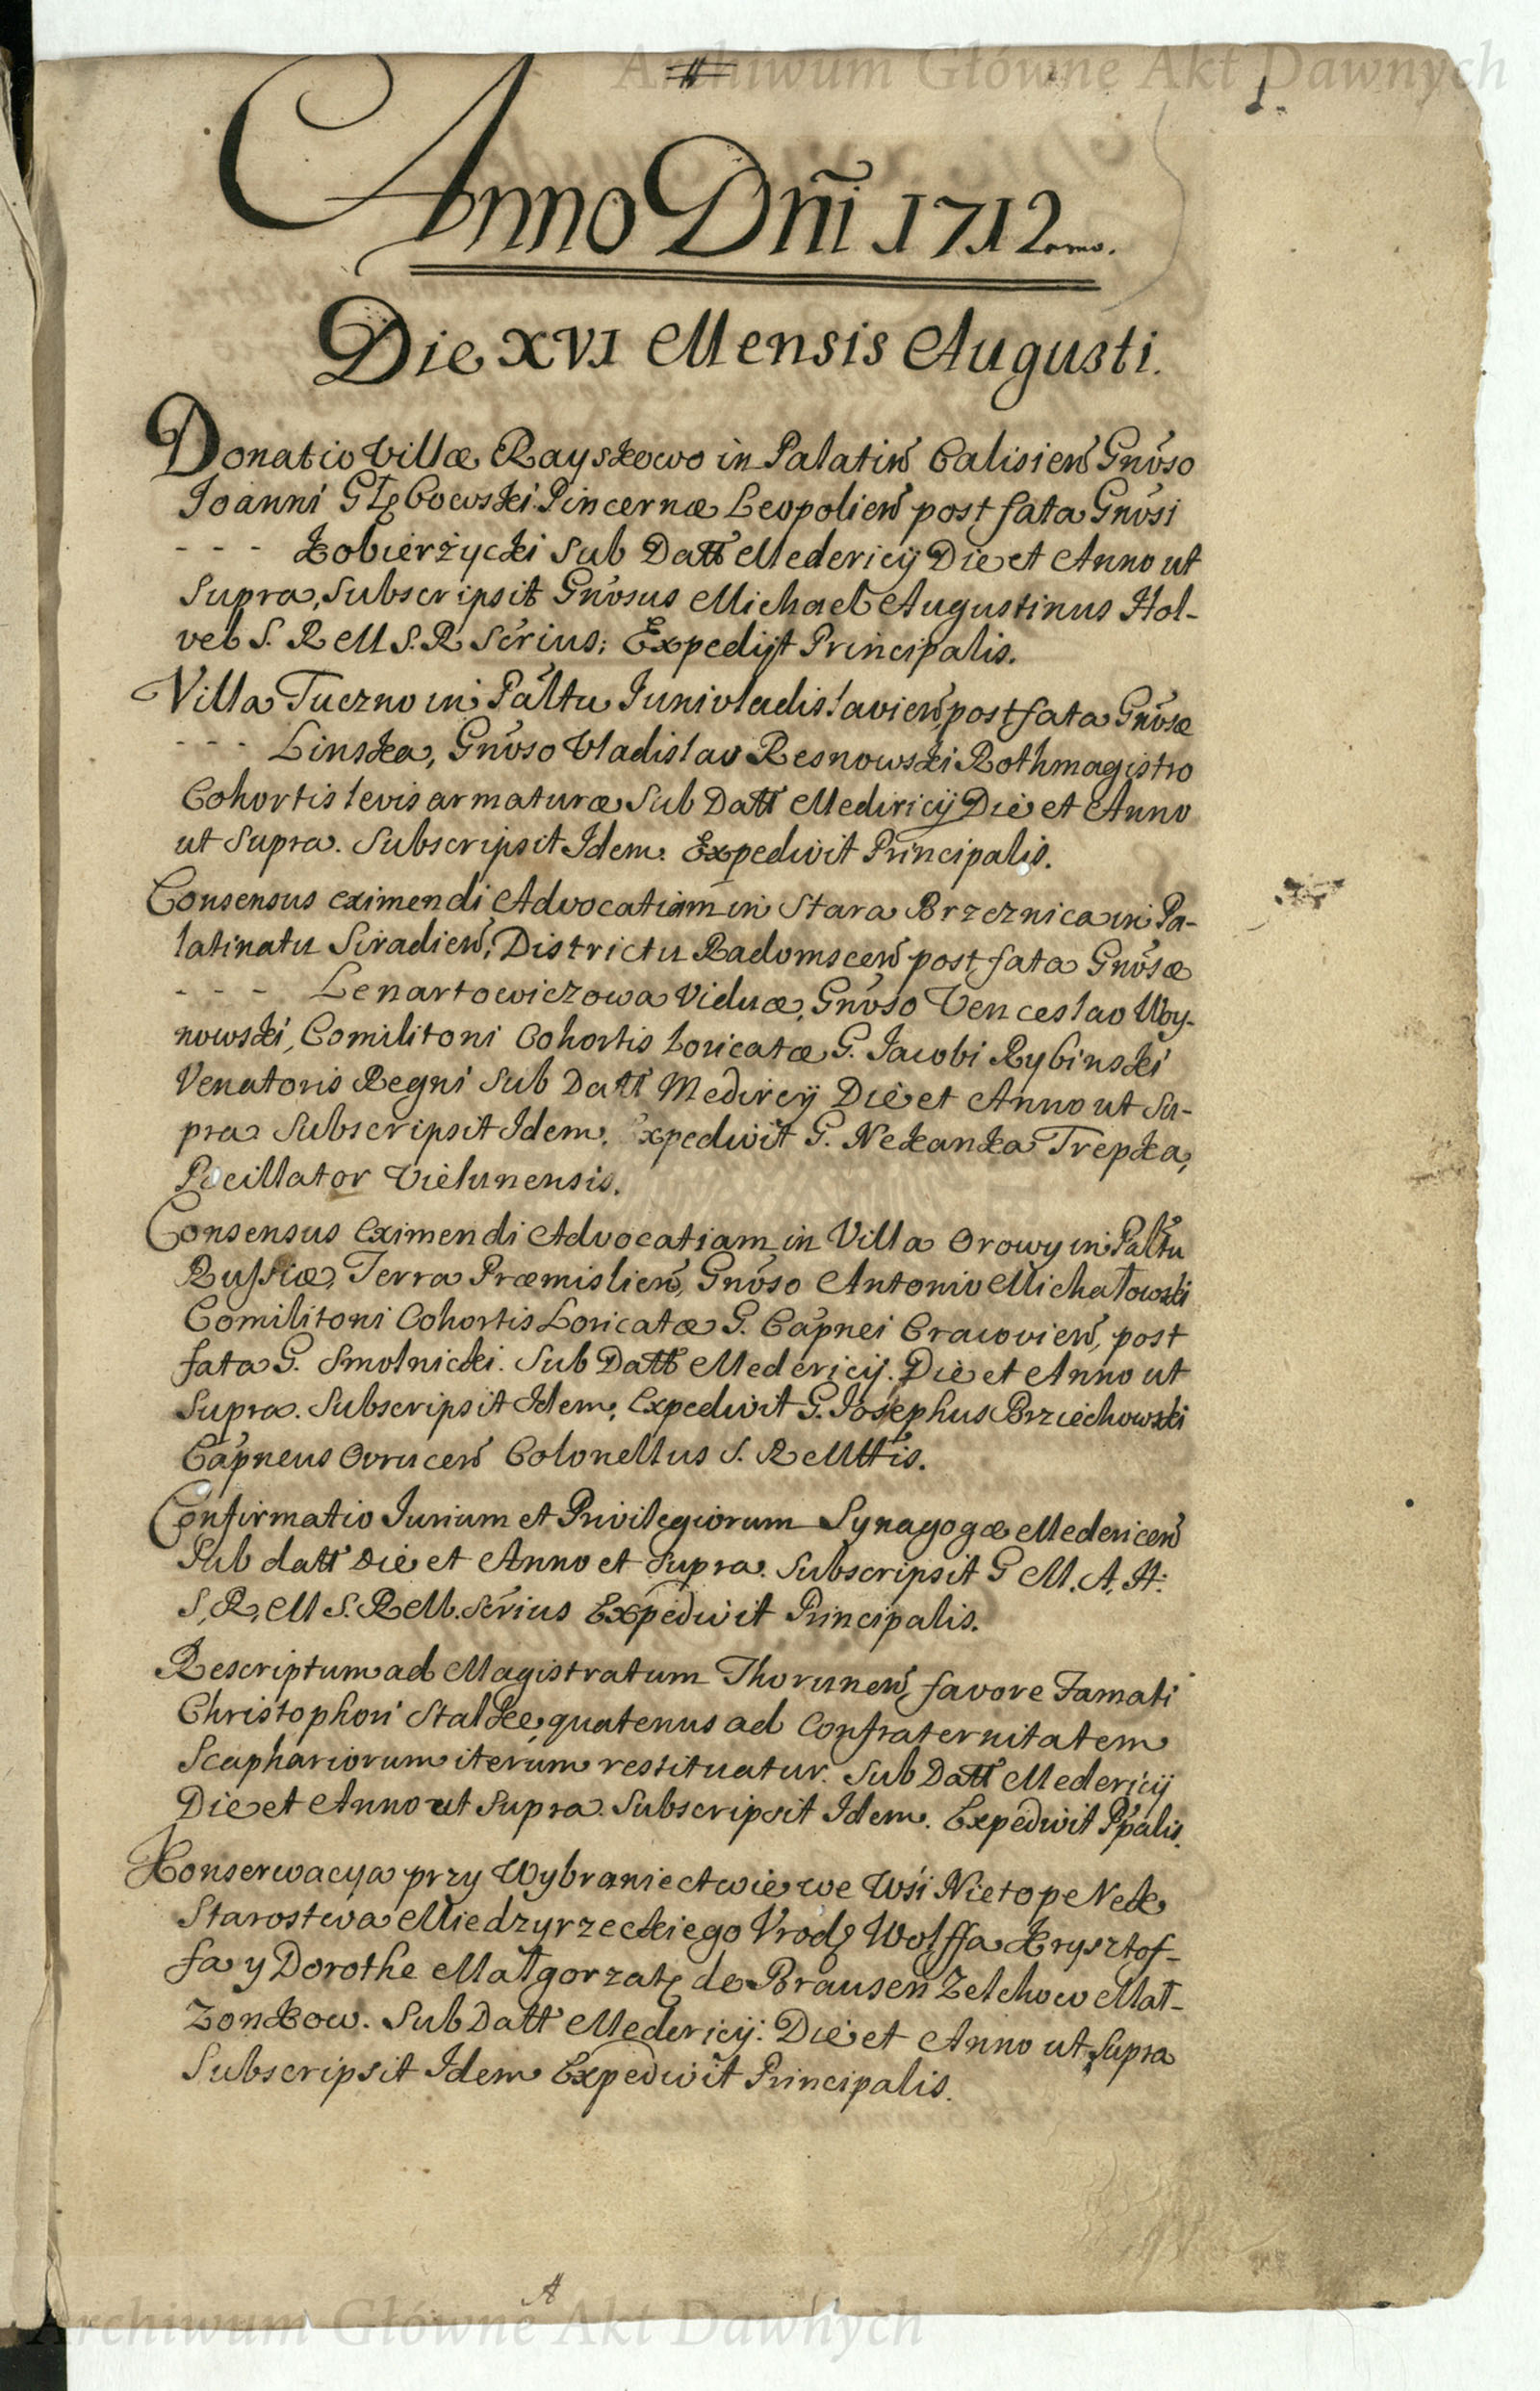 Archiwum Główne Akt Dawnych
1.
Anno Dñi 1712mo.
Die XVI Mensis Augusti.
Donatio Villæ Rayskowo in Palatiñ Calisień Gnõso
Joanni Głębowski Pincernæ Leopolień post fata Gnõsi
- - - Kobierżycki Sub Datt Medericij Die et Anno ut
Supra, Subscripsit Gnõsus Michael Augustinus Hol-
vel S. R M S. R Scr̃ius; Expedijt Principalis.
Villa Tuczno in Pal̃tu Junivladislavień, post fata Gnõsæ
- - - Linska, Gnõso Vladislao Resnowski Rothmagistro
Cohortis levis armaturæ Sub Datt Mediricij Die et Anno
ut Supra. Subscripsit Idem. Expedivit Principalis.
Consensus eximendi Advocatiam in Stara Brzeznica in Pa-
latinatu Siradień, Districtu Radomsceń post fata Gnõsæ
- - - Lenartowiczowa Viduæ, Gnõso Venceslao Woy-
nowski, Comilitoni Cohortis Loricatæ G. Jacobi Rybinski
Venatoris Regni Sub Datt Medircij Die et Anno ut Su-
pra Subscripsit Idem. Expedivit G. Nekanka Trepka,
Pocillator Vielunensis.
Consensus Eximendi Advocatiam in Villa Orowy in Pal̃tu
Russiæ, Terra Præmislień, Gnõso Antonio Michałowski
Comilitoni Cohortis Loricatæ G. Cap̃nei Cracovień, post
fata G. Smolnicki. Sub Datt Medericij. Die et Anno ut
Supra. Subscripsit Idem, Expedivit G. Josephus Brziechowski
Cap̃neus Ovruceń Colonellus S. R Mttis.
Confirmatio Jurium et Privilegiorum Synagogæ Medericeń
Sub datt Die et Anno et Supra. Subscripsit G M. A. H:
S, R, M S. R M. Scr̃ius Expedivit Principalis.
Rescriptum ad Magistratum Thoruneń, favore Famati
Christophori Stalkee, quatenus ad Confraternitatem
Scaphariorum iterum restituatur. Sub Datt Medericij
Die et Anno ut Supra. Subscripsit Idem. Expedivit Pp̃alis.
Konserwacya przy Wybraniectwie we Wśi Nietope Nek
Starostwa Miedzyrzeckiego Vrodz Wolffa Krysztof-
fa y Dorothe Małgorzatę de Brausen Zelchow Mał-
Zonkow. Sub Datt Medericij. Die et Anno ut Supra
Subscripsit Idem Expedivit Principalis.
A
Archiwum Główne Akt Dawnych